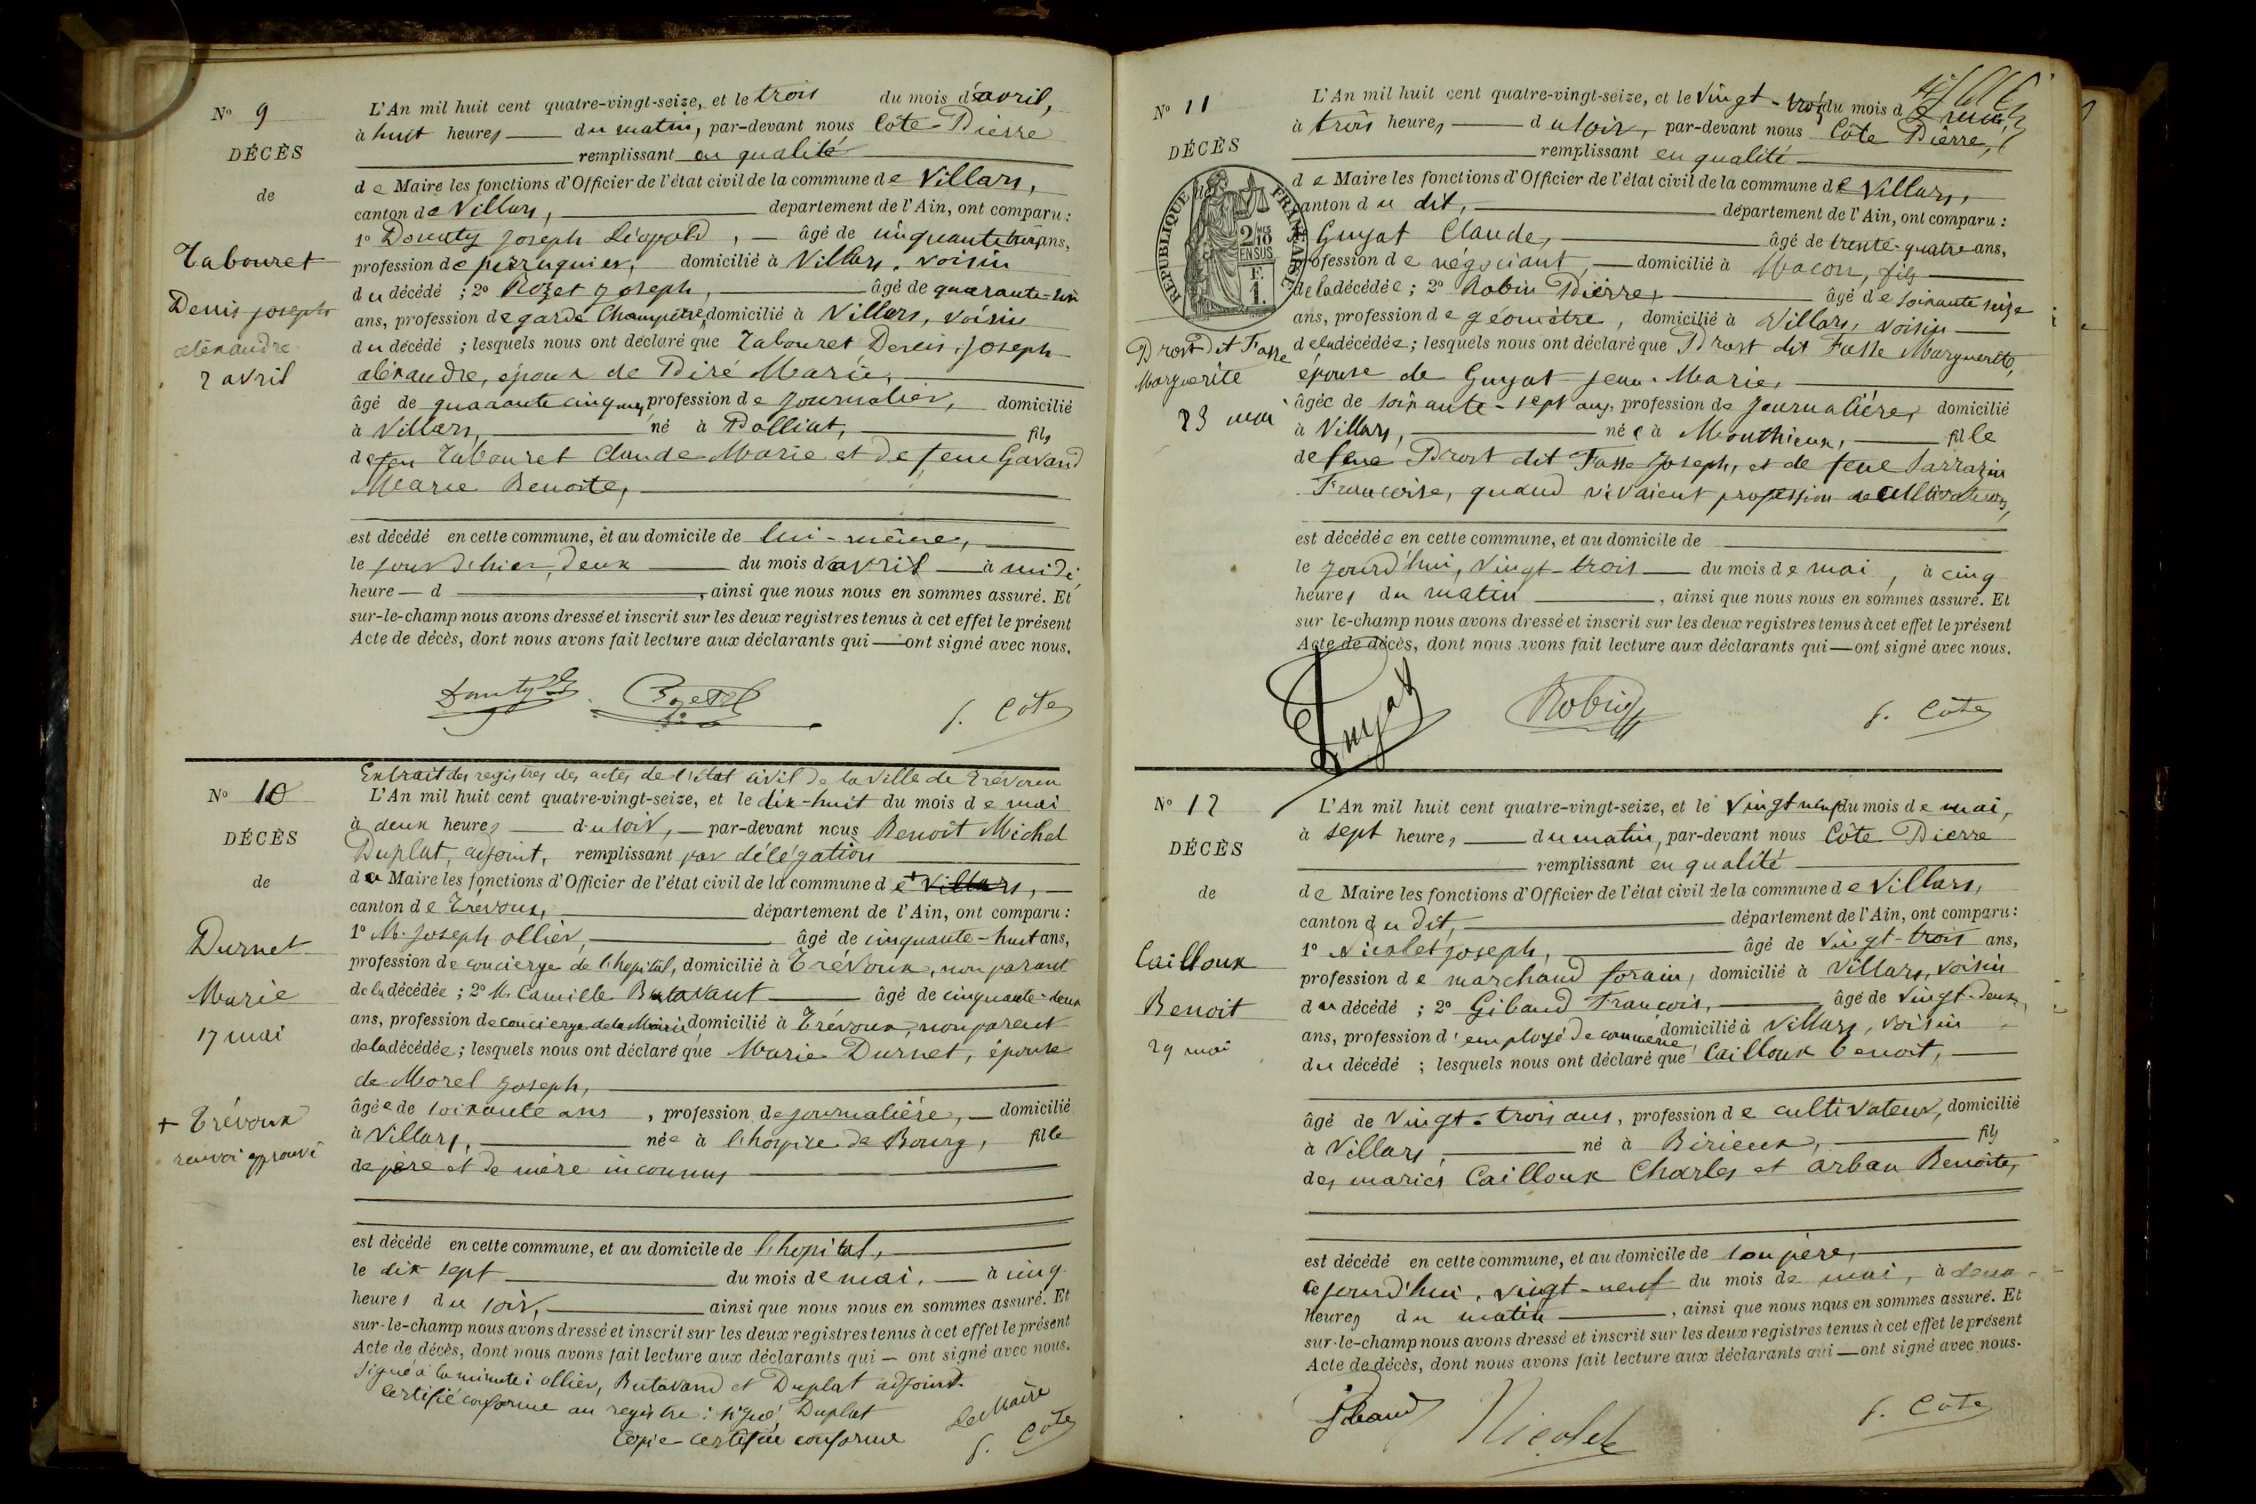 N° 9
DÉCÈS
de
Tabouret
Denis Joseph
alexandre
2 avril
L'An mil huit cent quatre-vingt-seize, et le trois du mois d'avril,
à huit heures du matin, par-devant nous Côte Pierre
remplissant en qualité
de Maire les fonctions d'Officier de l'état civil de la commune de Villars,
canton de Villars, département de l'Ain, ont comparu :
1° Joseph Léopold, âgé de cinquante trois ans,
profession de perruquier, domicilié à Villars, voisin
du décédé ; 2° Rozet Joseph, âgé de quarante-
ans, profession de garde Champêtre, domicilié à Villars, voisin
du décédé ; lesquels nous ont déclaré que Tabouret Denis, Joseph
alexandre, époux de Piré Marie,
âgé de quarante cinq ans, profession de Journalier, domicilié
à Villars, né à Polliat, fils
de feu Tabouret Claude Marie et de feue Gavand
Marie Benoite,
est décédé en cette commune, et au domicile de lui-même,
le jour d'hier, deux du mois d'avril à midi,
heure d , ainsi que nous nous en sommes assuré. Et
sur-le-champ nous avons dressé et inscrit sur les deux registres tenus à cet effet le présent
Acte de décès, dont nous avons fait lecture aux déclarants qui ont signé avec nous.
Rozet
P. Côte
N° 10
DÉCÈS
de
Durnet
Marie
17 mai
+ Trévoux
renvoi approuvé
Extrait des registres des actes de l'état civil de la ville de Trévoux
L'An mil huit cent quatre-vingt-seize, et le dix-huit du mois de mai
à deux heures du soir, par-devant nous Benoît Michel
Duplat, adjoint, remplissant par délégation
du Maire les fonctions d'Officier de l'état civil de la commune de + Villars,
canton de Trévoux, département de l'Ain, ont comparu :
1° M. Joseph ollier, âgé de cinquante-huit ans,
profession de concierge de l'hopital, domicilié à Trévoux, non parent
de la décédée ; 2° M. Camille Butavant âgé de cinquante-deux
ans, profession de concierge de la Mairie domicilié à Trévoux, non parent
de la décédée ; lesquels nous ont déclaré que Marie Durnet, épouse
de Morel Joseph,
âgée de soixante ans, profession de journalière, domicilié
à Villars, née à l'hospice de Bourg, fille
de père et de mère inconnus
est décédé en cette commune, et au domicile de l'hopital,
le dix sept du mois de mai, à cinq
heures du soir, ainsi que nous nous en sommes assuré. Et
sur-le-champ nous avons dressé et inscrit sur les deux registres tenus à cet effet le présent
Acte de décès, dont nous avons fait lecture aux déclarants qui ont signé avec nous.
Signé à la minute : ollier, Butavand et Duplat adjoint.
Certifié conforme au registre : signé, Duplat
Copie certifiée conforme
Le Maire
P. Côte
N° 11
DÉCÈS
RÉPUBLIQUE FRANÇAISE
2/10 EN SUS
F. 1.
Prost dit Fasse
Marguerite
23 mai
L'An mil huit cent quatre-vingt-seize, et le Vingt-trois du mois de mai,
à trois heures du soir, par-devant nous Côte Pierre,
remplissant en qualité
de Maire les fonctions d'Officier de l'état civil de la commune de Villars,
canton du dit, département de l'Ain, ont comparu :
Guyat Claude, âgé de trente-quatre ans,
profession de négociant, domicilié à Macon, fils
de la décédée ; 2° Robin Pierre, âgé de soixante seize
ans, profession de géomètre, domicilié à Villars, voisin
de la décédée ; lesquels nous ont déclaré que Prost dit Fasse Marguerite,
épouse de Guyat Jean-Marie,
âgée de soixante-sept ans, profession de Journalière, domicilié
à Villars, née à Monthieux, fille
de feue Prost dit Fasse Joseph, et de feue Sarrazin
Francoise, quand vivaient profession de cultivateurs,
est décédée en cette commune, et au domicile de
le jourd'hui, vingt-trois du mois de mai, à cinq
heures du matin, ainsi que nous nous en sommes assuré. Et
sur le-champ nous avons dressé et inscrit sur les deux registres tenus à cet effet le présent
Acte de décès, dont nous avons fait lecture aux déclarants qui ont signé avec nous.
Guyat
Robin
P. Côte
N° 12
DÉCÈS
de
Cailloux
Benoit
29 mai
L'An mil huit cent quatre-vingt-seize, et le Vingt neuf du mois de mai,
à sept heures du matin, par-devant nous Côte Pierre
remplissant en qualité
de Maire les fonctions d'Officier de l'état civil de la commune de Villars,
canton du dit, département de l'Ain, ont comparu :
1° Nicolet Joseph, âgé de vingt-trois ans,
profession de marchand forain, domicilié à Villars, voisin
du décédé ; 2° Giband Francois, âgé de vingt-deux
ans, profession d'employé de commerce, domicilié à Villars, voisin
du décédé ; lesquels nous ont déclaré que Cailloux benoit,
âgé de vingt-trois ans, profession de cultivateur, domicilié
à Villars, né à Birieux, fils
des mariés Cailloux Charles et arban Benoite,
est décédé en cette commune, et au domicile de son père,
ce jourd'hui, vingt-neuf du mois de mai, à deux
heures du matin, ainsi que nous nous en sommes assuré. Et
sur-le-champ nous avons dressé et inscrit sur les deux registres tenus à cet effet le présent
Acte de décès, dont nous avons fait lecture aux déclarants qui ont signé avec nous.
Giband
Nicolet
P. Côte